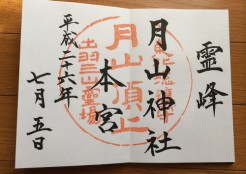 霊峰
月山神社
本宮
月山頂上
出羽三山霊場
平成二十六年
七月五日